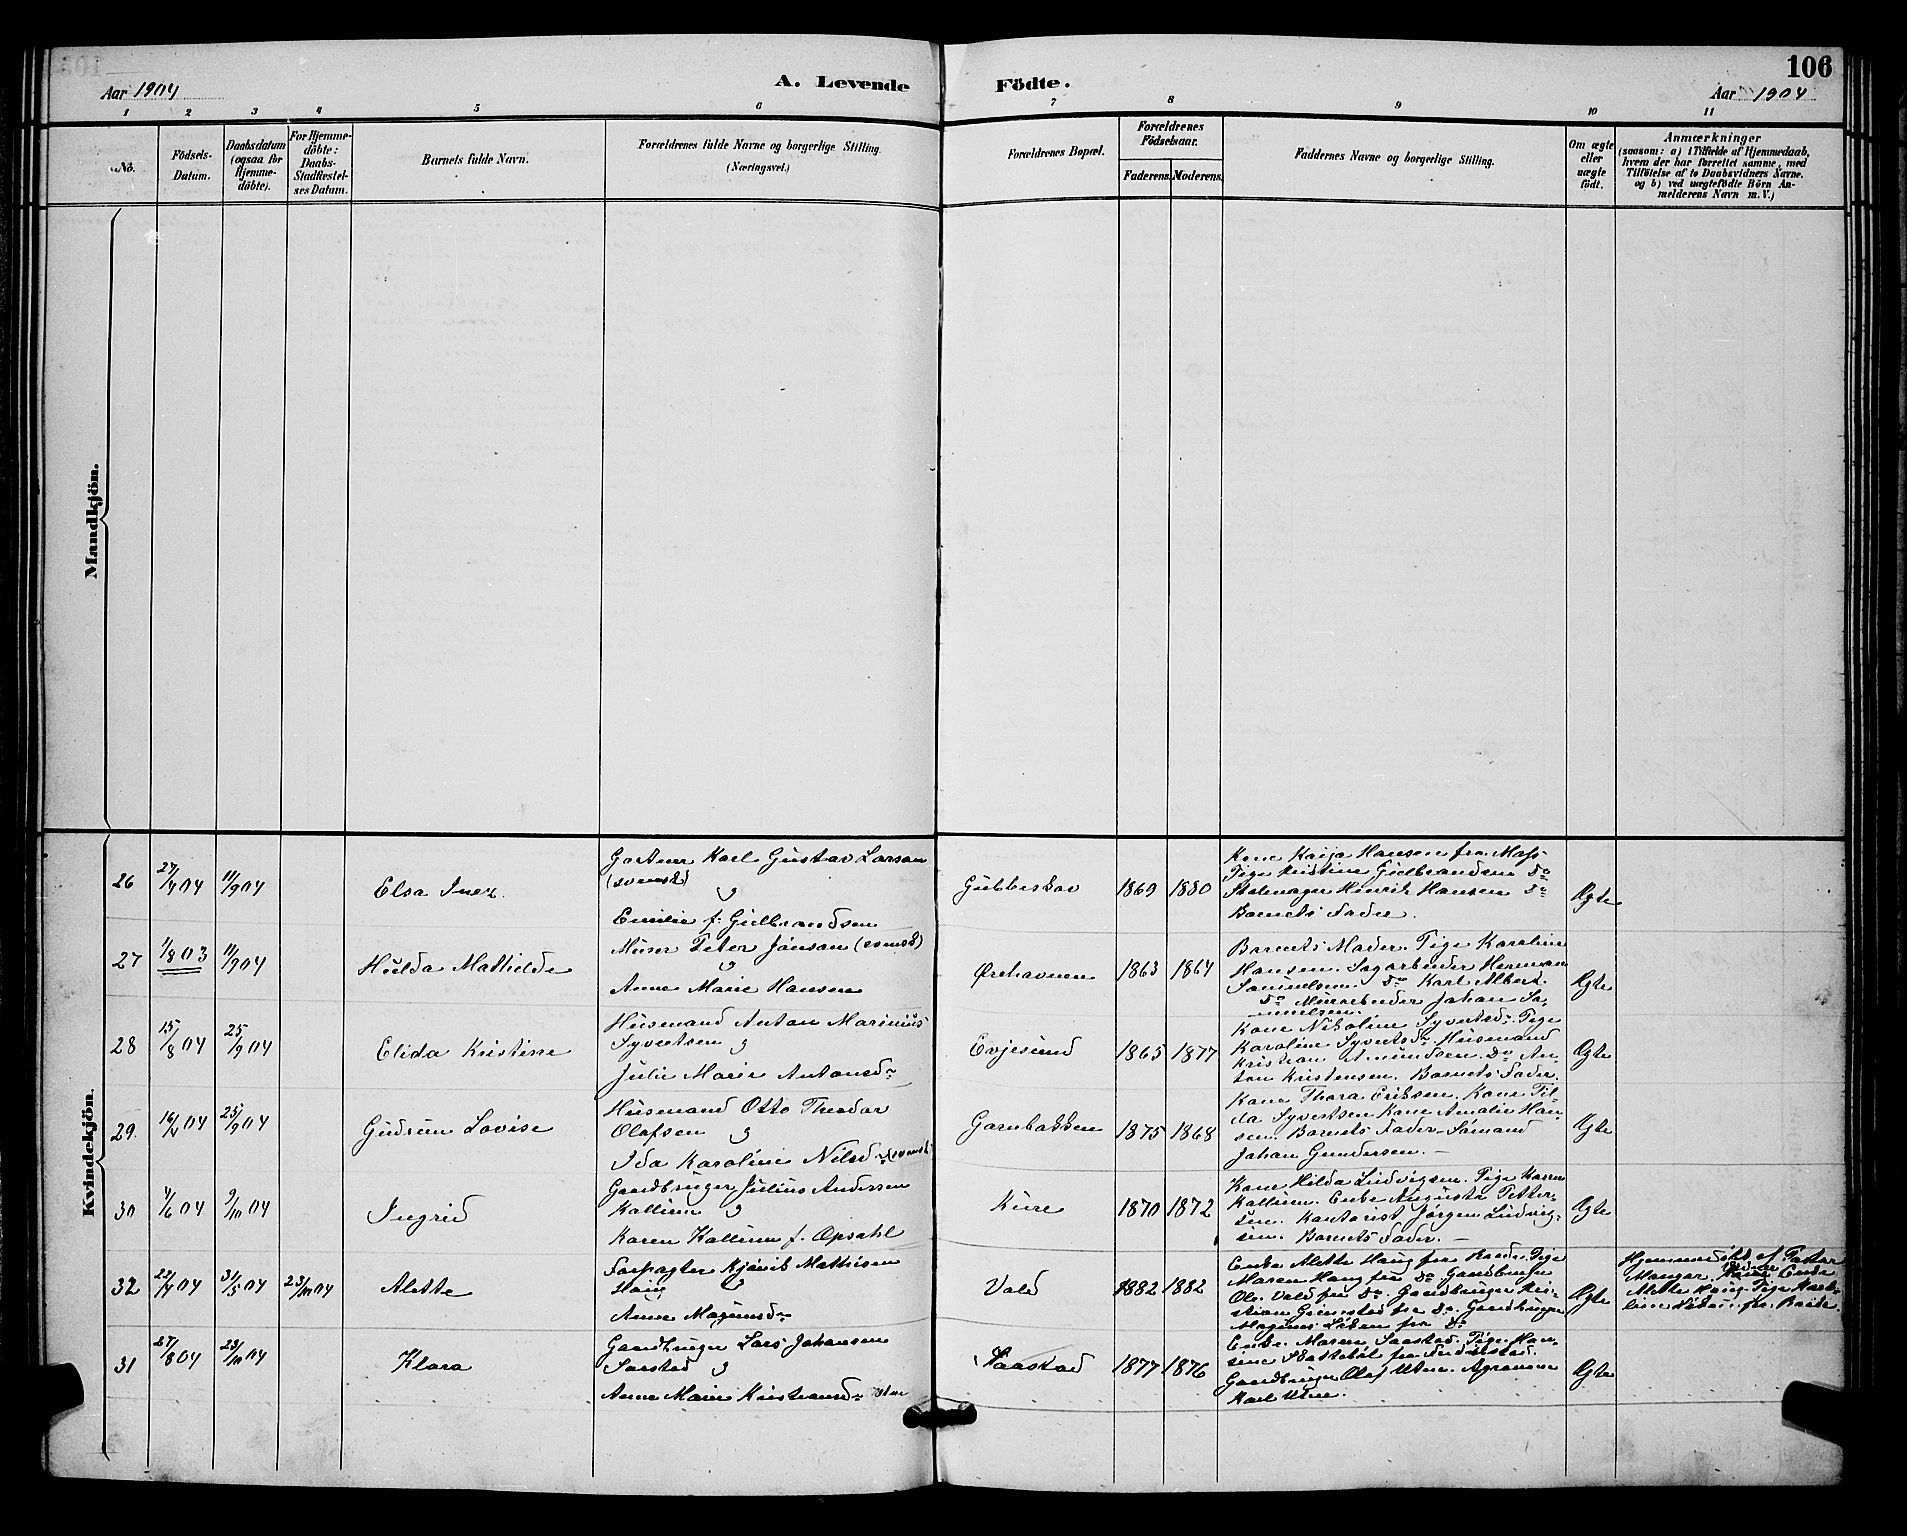 106
Aar 1904
A. Levende Födte.
Aar 1904
1 2 3 4 5 6 7 8 9 10 11
No.
Födsels-
Datum.
Daabsdatum
(ogsaa for
Hjemme-
döbte).
For Hjemme-
döbte:
Daabs-
Stadfæstel-
ses Datum.
Barnets fulde Navn.
Forældrenes fulde Navne og borgerlige Stilling
(Næringsvei.)
Forældrenes Bopæl.
Forældrenes
Födselsaar.
Faderens. Moderens.
Faddernes Navne og borgerlige Stilling.
Om ægte
eller
uægte
födt.
Anmærkninger
(saasom: a) i Tilfælde af Hjemmedaab,
hvem der har forrettet samme, med
Tilföielse af to Daabsvidners Navne.
og b) ved uægtefödte Börn An-
melderens Navn m. V.)
Mandkjön.
Kvindekjön.
26
27/7 04
11/9 04
Elsa Inez.
Gartner Karl Gustav Larson
(svensk)
g
Emilie f. Gulbrandsen
Gubbeskov
1869 1880
Kone Kaija Hansen fra Moss
Pige Kristine Gulbrandsen Do
Henrik Hansen Do
Barnets Fader.
Ægte
27
1/8 03
11/9 04
Hulda Mathilde
Murer Peter Jonson (svensk)
g
Anne Marie Hansen
Ørehavnen
1863 1864
Barnets Moder. Pige Karoline
Hansen. Sagarbeider Herman
Samuelsen. Do Karl Albert.
Do Murarbeider Johan Sa-
muelsen.
Ægte
28
15/8 04
25/9 04
Elida Kristine
Husmand Anton Marinius
Syvertsen g
Julie Marie Antonsd.
Evjesund
1865 1877
Kone Nikoline Syvertsd. Pige
Karoline Syvertsd. Husmand
Kristian Amundsen. Do An-
ton Kristensen. Barnets Fader.
Ægte
29.
16/4 04
25/9 04
Gudrun Lovise
Husmand Otto Theodor
Olafsen g
Ida Karoline Nilsd. (svensk)
Garnbakken
1875 1868
Kone Thora Eriksen, Kone Til-
da Syvertsen Kone Amalie Han-
sen. Barnets Fader – Sömand
Johan Gundersen. –
Ægte
30
4/6 04
9/10 04
Ingrid
Gaardbruger Julius Andersen
Kallum g
Karen Kallum f. Opsahl
Kure
1870 1872
Kone Hilda Ludvigsen. Pige Karen
Kallum. Enke Augusta Petter-
sen. Kontorist Jørgen Ludvig-
sen. Barnets Fader. –
Ægte
32
22/4 04
31/5 04
23/10 04
Alette
Forpagter Kjönik Mathisen
Haug g
Anne Magnusd.
Vold
1882 1882
Enke Alette Haug fra Raade. Pige
Maren Haug fra Do Gaardbruger
Ole Vold fra Do. Gaardbruger Kri-
stian Grimstad fra Do. Gaardbruger
Magnus Löken fra Do
Ægte
Hjemmedöbt af Pastor
Enke
Alette Haug. Pige Karo-
line Löken fra Raade.
31
27/8 04
23/10 04
Klara
Gaardbruger Lars Johansen
Saastad g
Anne Marie Kristiansd. Uten
Saastad
1877 1876
Enke Maren Saastad. Pige Han-
sine Skattebøl fra Fredrikstad.
Gaardbruger Olaf Uten. Agronom
Karl Uten.
Ægte